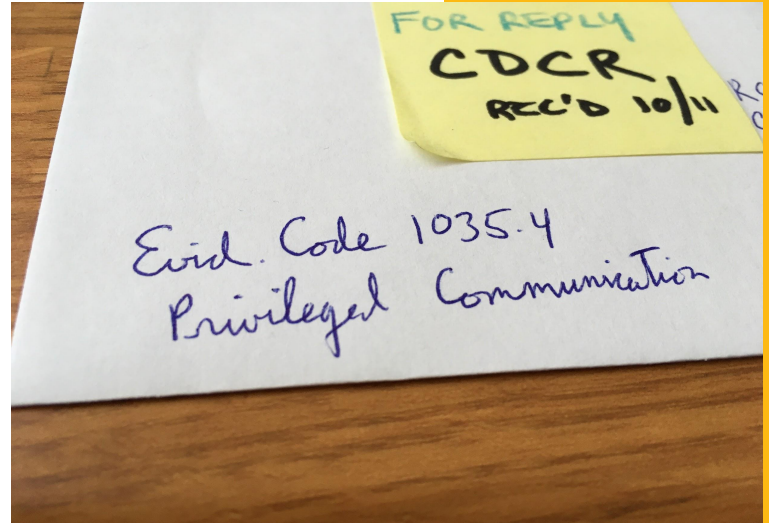 FOR REPLY
CDCR
REC'D 10/11
Evid. Code 1035.4
Privileged Communication